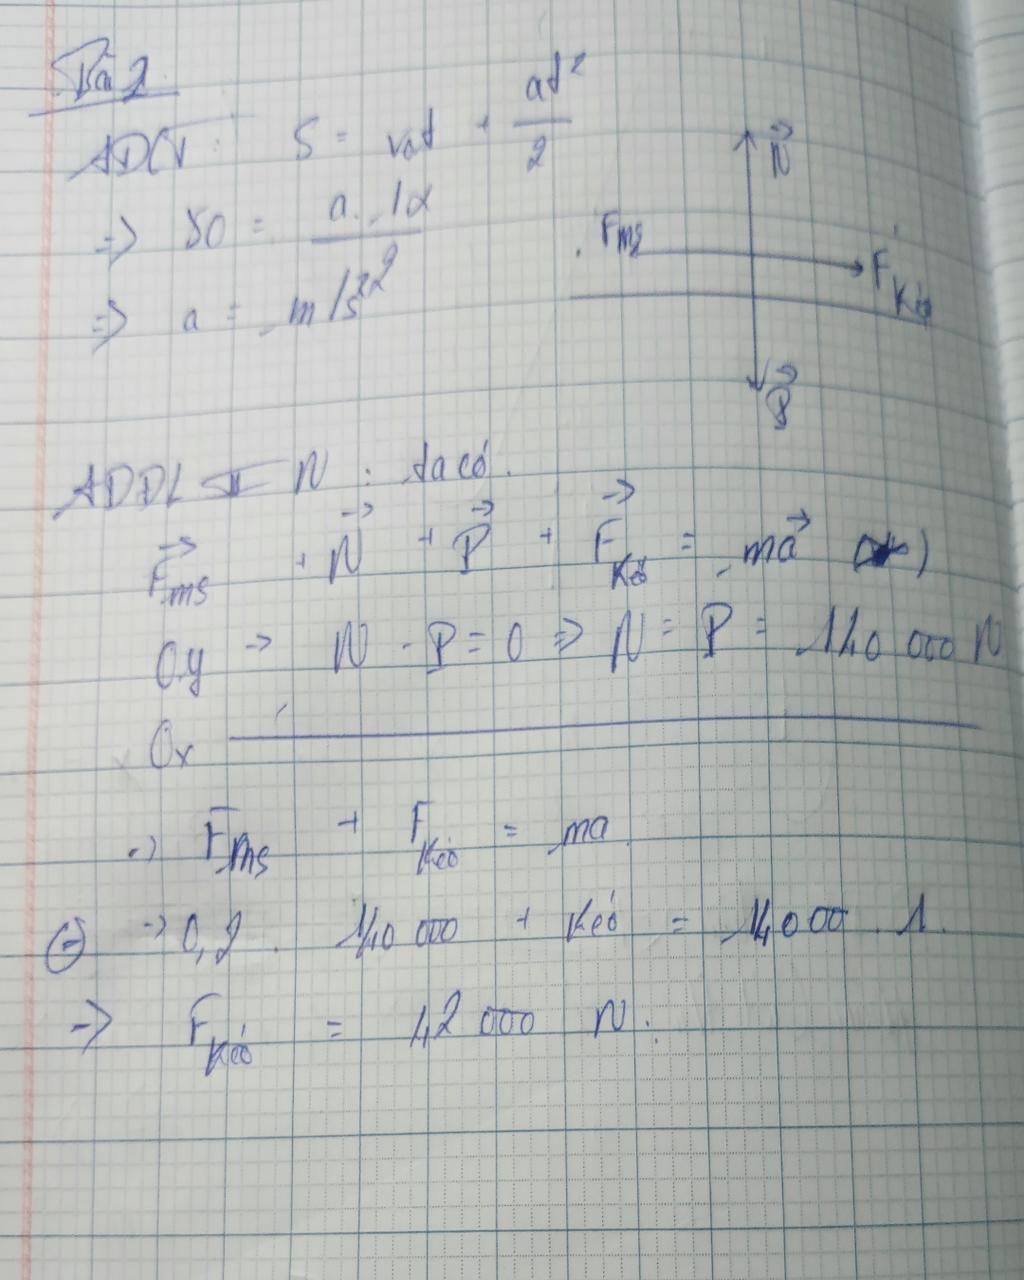 Bài 2
ADCT: S = v₀t + at²/2
=> 50 = a.10/2
=> a = m/s²
N
Fms
Fkéo
P
ADDL II N : ta có.
Fms + N + P + Fkéo = ma (*)
Oy -> N - P = 0 => N = P = 140 000 N
Ox
-> Fms + Fkéo = ma
(-) -> 0,2 . 140 000 + kéo = 14000 . 1.
-> Fkéo = 42 000 N.